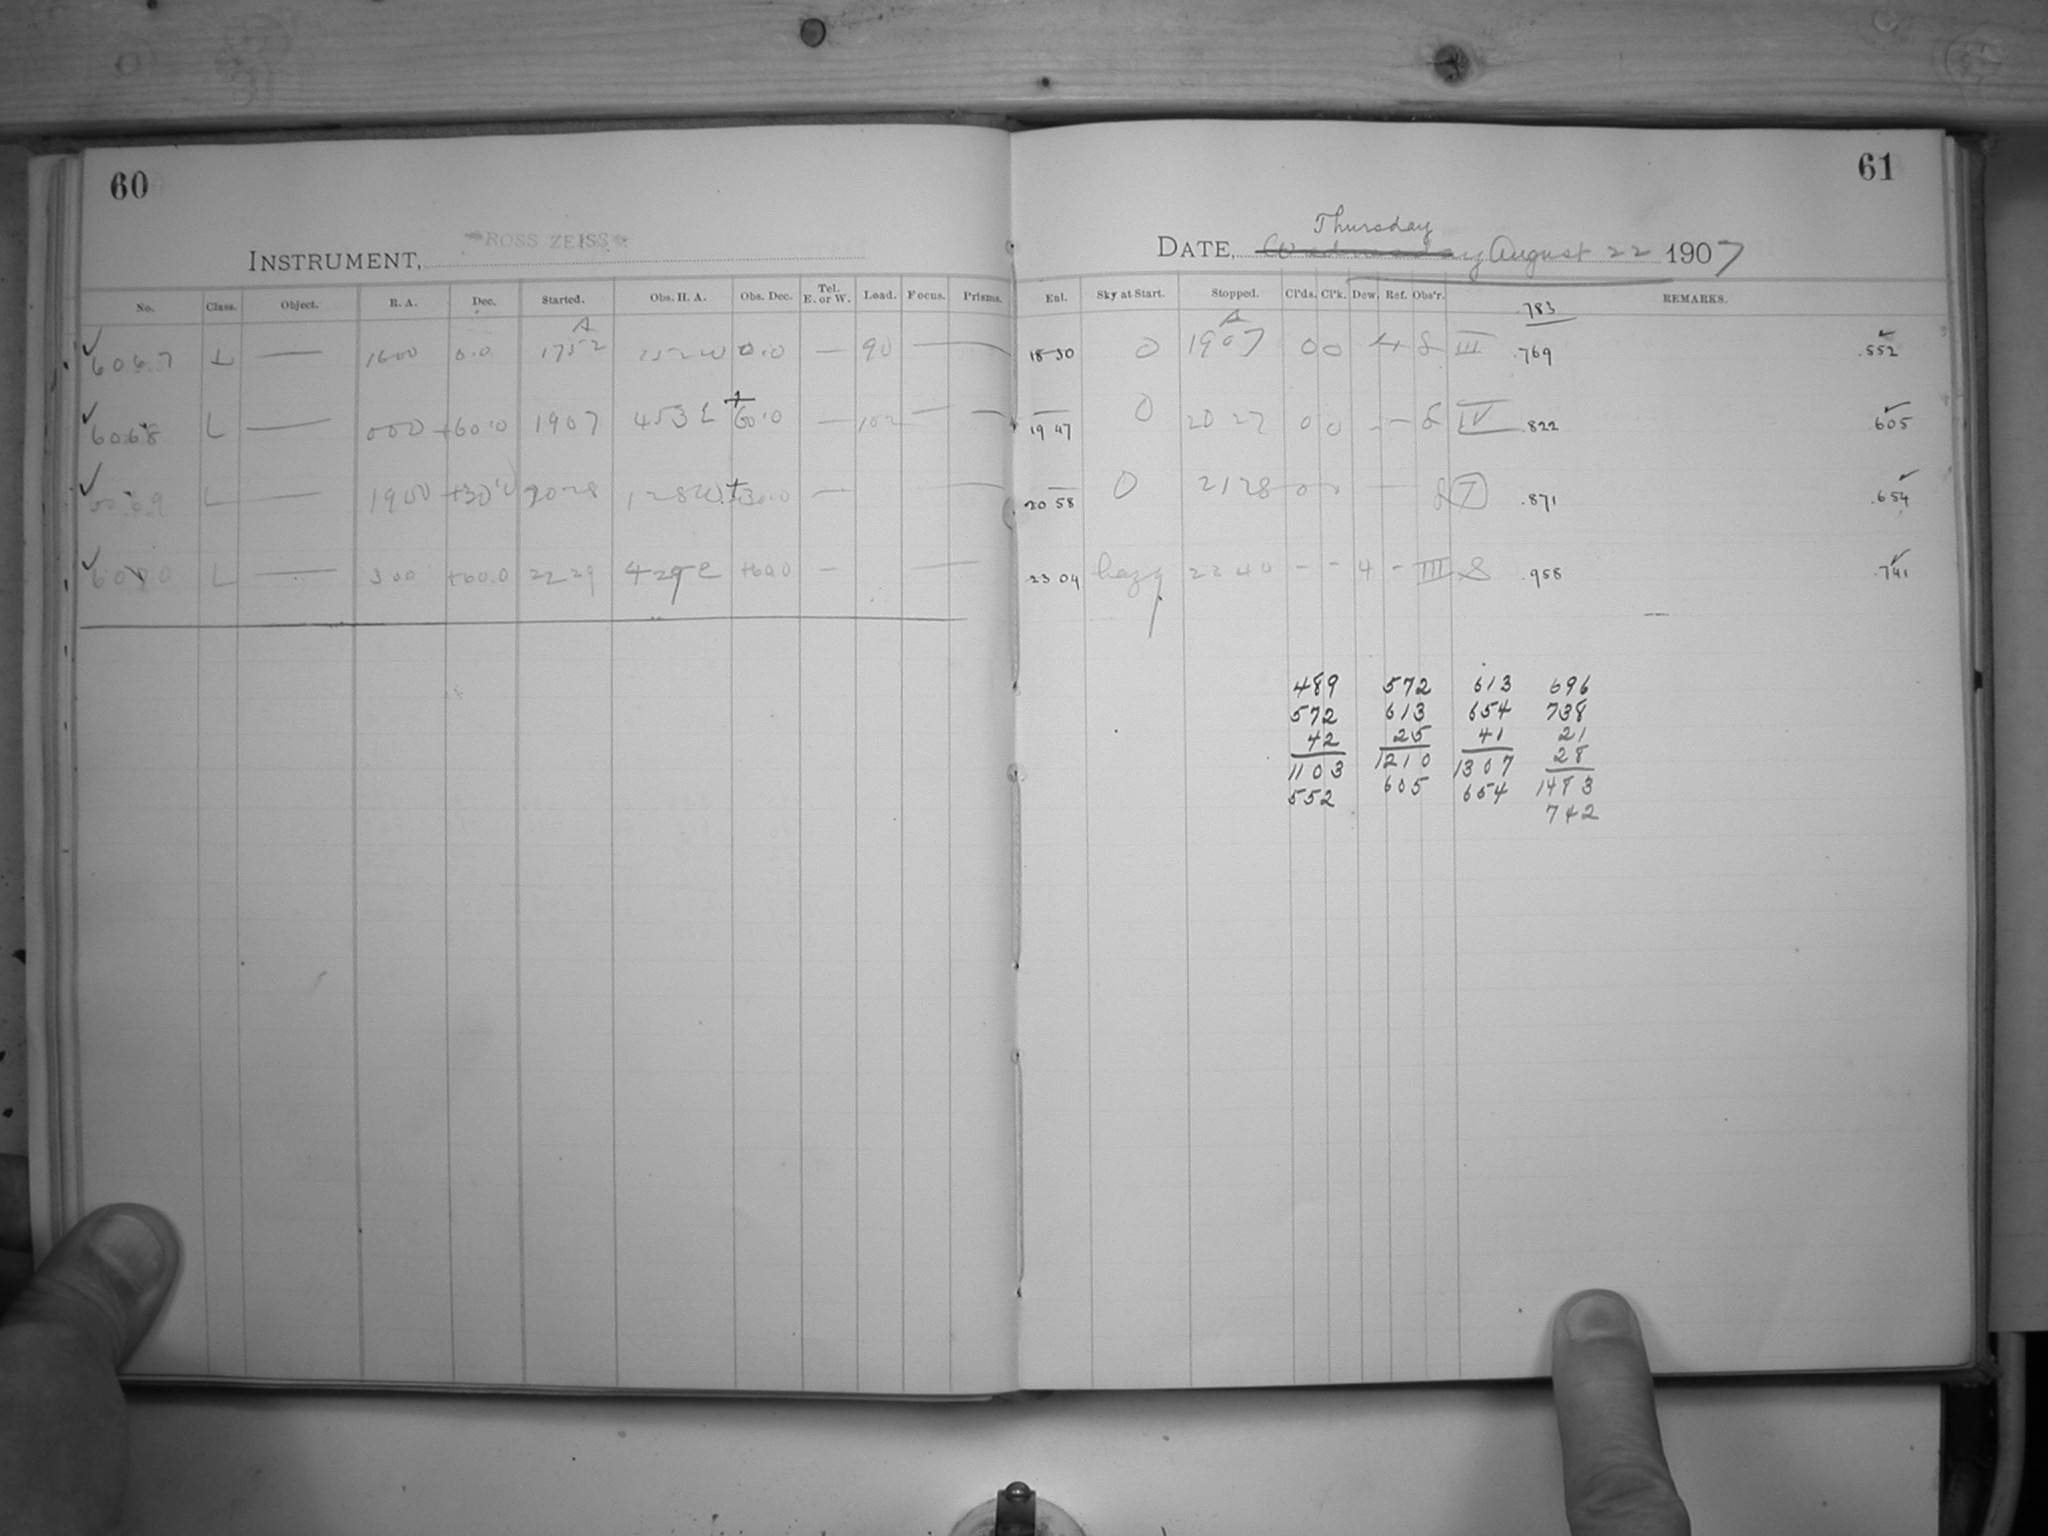 60
INSTRUMENT, ROSS ZEISS
No. Class. Object. R. A. Dec. Started. Obs. H. A. Obs. Dec. Tel. E. or W. Load. Focus. Prisms.
6067 L — 1600 0.0 1752 152 W 0.0 — 90 —
6068 L — 000 +60.0 1907 453 E +60.0 — 102 — —
L — 1900 +30.0 2028 128 W +30.0 — —
L — 300 +60.0 2229 429 E +60.0 — —
61
Thursday
DATE, Wednesday August 22 1907
Enl. Sky at Start. Stopped. Cl'ds. Cl'k. Dew. Ref. Obs'r. REMARKS.
.783
18 30 0 1907 0 0 4 S III .769 .552
19 47 0 2027 0 0 - - S IV .822 .605
20 58 0 2128 0 0 — S .871 .654
23 04 hazy 2240 - - 4 - III S .958 .741
489 572 613 696
572 613 654 738
42 25 41 21
28
1103 1210 1307 1483
552 605 654 742